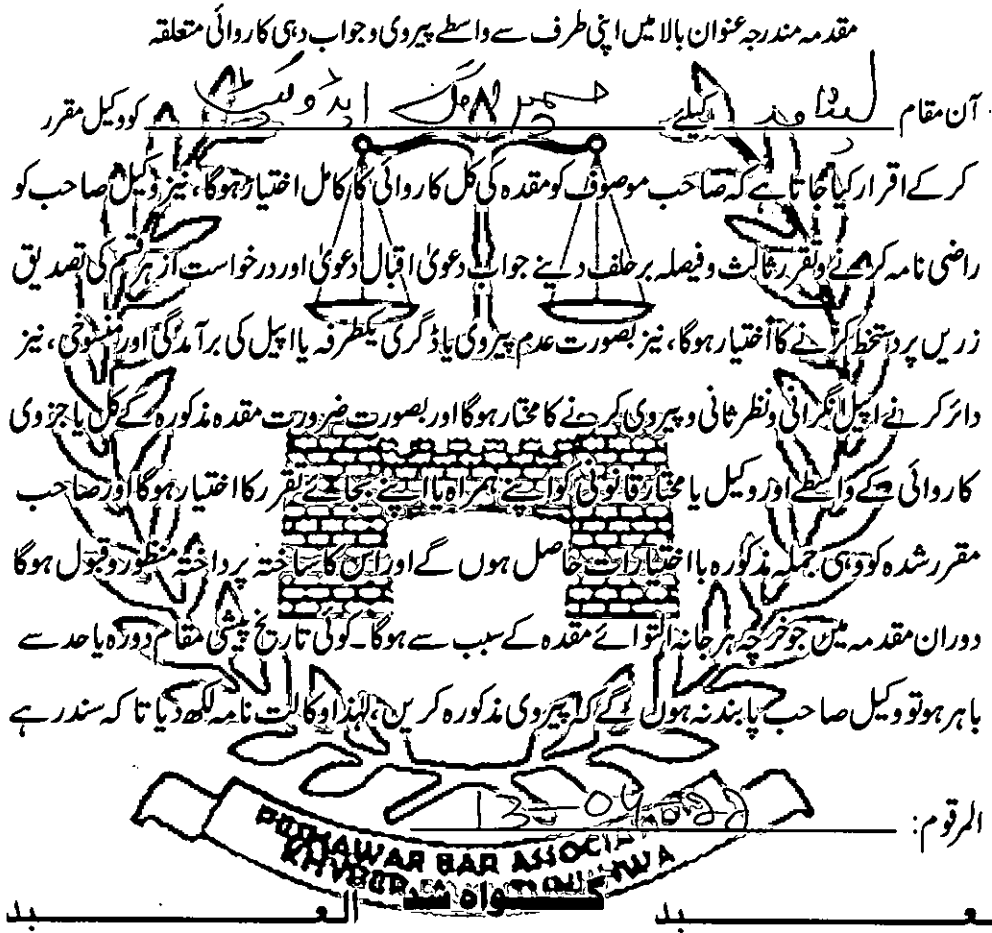 مقدمہ مندرجہ عنوان بالا میں اپنی طرف سے واسطے پیروی و جواب دہی کاروائی متعلقہ
آن مقام کیلئے ایڈوکیٹ کو وکیل مقرر
کر کے اقرار کیا جاتا ہے کہ صاحب موصوف کو مقدہ کی کل کاروائی کا کامل اختیار ہوگا، نیز وکیل صاحب کو
راضی نامہ کرنے و تقرر ثالث و فیصلہ بر حلف دینے جواب دعویٰ اقبال دعویٰ اور درخواست از ہر قسم کی تصدیق
زریں پر دستخط کرنے کا اختیار ہوگا، نیز بصورت عدم پیروی یا ڈگری یکطرفہ یا اپیل کی برآمدگی اور منسوخی، نیز
دائر کرنے اپیل نگرانی و نظر ثانی و پیروی کرنے کا مختار ہوگا اور بصورت ضرورت مقدہ مذکورہ کے کل یا جزوی
کاروائی کے واسطے اور وکیل یا مختار قانونی کو اپنے ہمراہ یا اپنے بجائے تقرر کا اختیار ہوگا اور صاحب
مقرر شدہ کو وہی جملہ مذکورہ با اختیارات حاصل ہوں گے اور اس کا ساختہ پرداختہ منظور و قبول ہوگا
دوران مقدمہ میں جو خرچہ ہرجانہ التوائے مقدہ کے سبب سے ہوگا۔ کوئی تاریخ پیشی مقام دورہ یا حد سے
باہر ہو تو وکیل صاحب پابند نہ ہوں گے کہ پیروی مذکورہ کریں، لہٰذا وکالت نامہ لکھ دیا تا کہ سند رہے
المرقوم: 13-04-022
PESHAWAR BAR ASSOCIATION
KHYBER PAKHTUNKHWA
العبد گواہ شد العبد